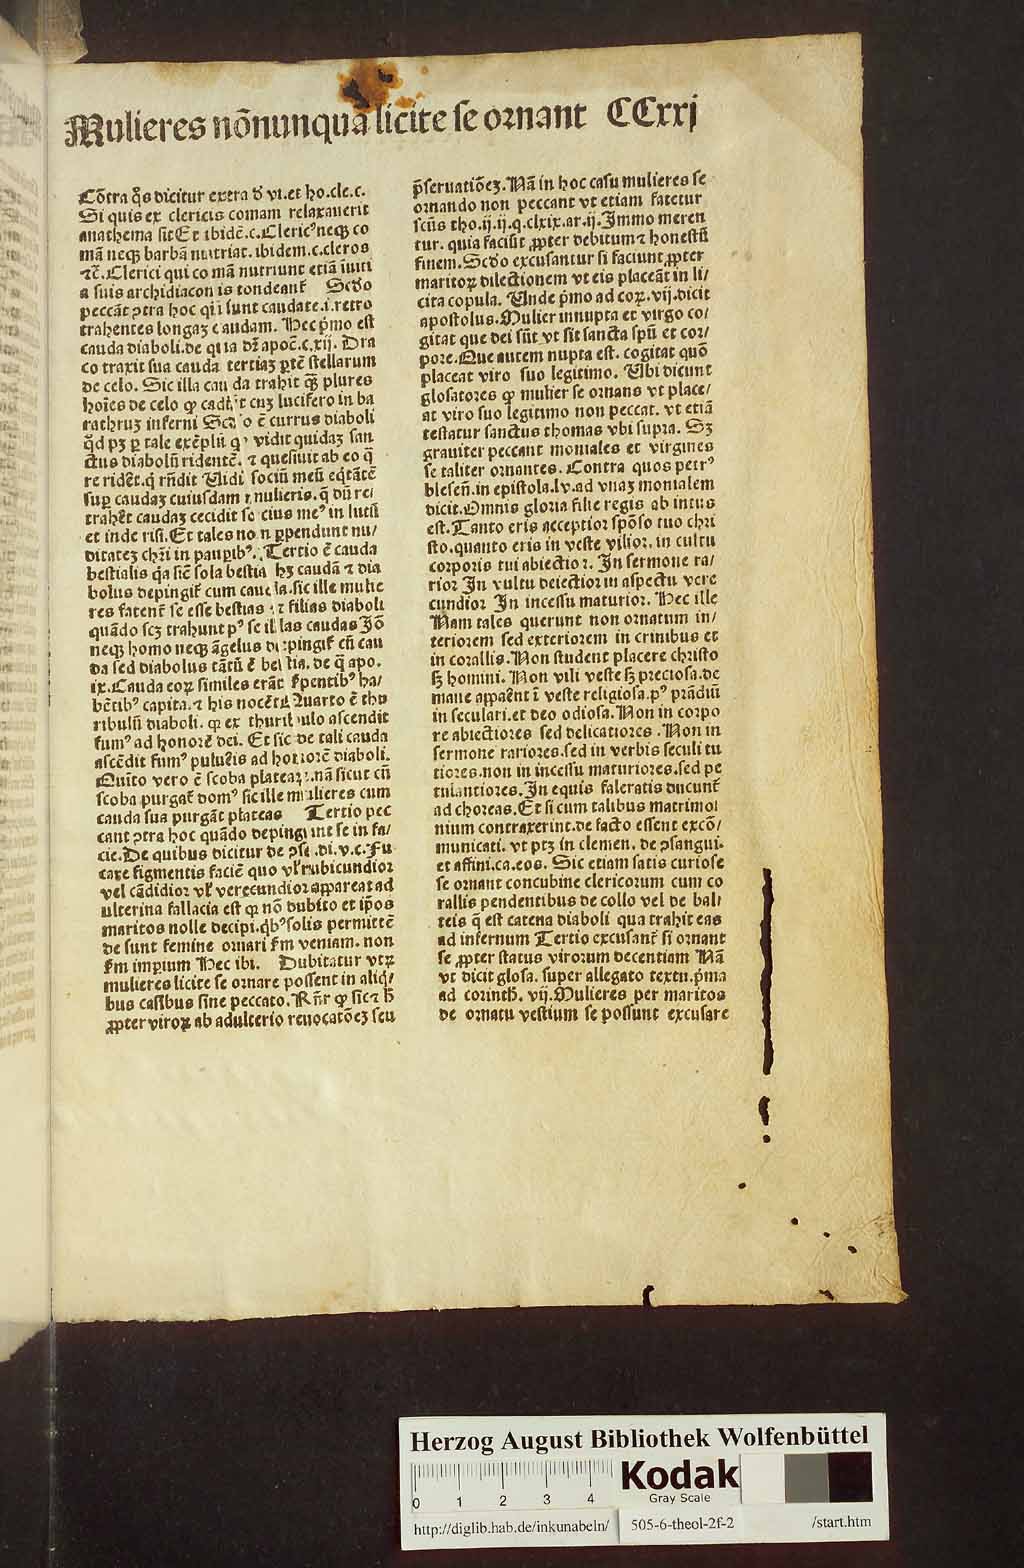 Mulieres nōnunqua licite se ornant CCxxj
Cōtra q̄s dicitur extra d' vi. et ho. cle. c.
Si quis ex clericis comam relaxauerit
anathema sit Et ibidē. c. Cleric⁹ neqꝫ co
mā neqꝫ barbā nutriat. ibidem. c. cleros
⁊c̄. Clerici qui comā nutriunt etiā iuiti
a suis archidiaconis tondeant᷑ Scd'o
peccāt ꝯtra hoc qui sunt caudate. i. retro
trahentes longaꝫ caudam. Hec p̄mo est
cauda diaboli. de qua dꝫ apoc̄. c. xij. Dra
co traxit sua cauda tertiaꝫ ꝑtē stellarum
de celo. Sic illa cauda trahit qꝫ plures
hoīes de celo ꝙ cadūt cuꝫ lucifero in ba
rathruꝫ inferni Scd'o ē currus diaboli
q̄d pꝫ ꝑ tale exēplū q⁹ vidit quidaꝫ san
ctus diabolū ridentē. ⁊ quesiuit ab eo q̄
re ridet. q̄ rn̄dit Uidi sociū meū eq̄tātē
suꝑ caudaꝫ cuiusdam mulieris. q̄ dū re/
traheret caudaꝫ cecidit socius me⁹ in lutū
et inde risi. Et tales non ꝑpendunt nu/
ditateꝫ chr̄i in pauꝑib⁹. Tertio ē cauda
bestialis q̄a sic̄ sola bestia hꝫ caudā ⁊ dia
bolus depingit᷑ cum cauda. sic ille mulie
res fatent᷑ se esse bestias ⁊ filias diaboli
quādo scꝫ trahunt p⁹ se illas caudas Jō
neqꝫ homo neqꝫ āgelus depingit᷑ cū cau
da sed diabolus tātū ⁊ bestia. de q̄ apo.
ix. Cauda eoꝝ similes erāt s̄pentib⁹ ha/
bētib⁹ capita. ⁊ his nocēt Quarto ē thu
ribulū diaboli. ꝙ ex thuribulo ascendit
fum⁹ ad honorē dei. Et sic de tali cauda
ascēdit fum⁹ pulueris ad honorē diaboli.
Quīto vero ē scoba plateaꝝ. nā sicut cū
scoba purgat᷑ dom⁹ sic ille mulieres cum
cauda sua purgāt plateas Tertio pec
cant ꝯtra hoc quādo depingunt se in fa/
cie. De quibus dicitur de ꝯse. di. v. c. Fu
care figmentis faciē quo vl᷑ rubicundior
vel cādidior vl᷑ verecundior appareat ad
ulterina fallacia est ꝙ nō dubito et ip̄os
maritos nolle decipi. q̄b⁹ solis permittē
de sunt femine ornari s̄m veniam. non
s̄m imꝑium Hec ibi. Dubitatur vtꝝ
mulieres licite se ornare possent in aliq̄/
bus casibus sine peccato. Rn̄r ꝙ sic ⁊ h̄
ꝓpter viroꝝ ab adulterio reuocatōeꝫ seu
p̄seruatiōeꝫ. Nā in hoc casu mulieres se
ornando non peccant vt etiam fatetur
scūs tho. ij. ij. q. clxix. ar. ij. Immo meren
tur. quia faciūt ꝓpter debitum ⁊ honestū
finem. Scd'o excusantur si faciunt ꝓpter
maritoꝝ dilectionem vt eis placeāt in li/
cita copula. Unde p̄mo ad coꝝ. vij. dicit
apostolus. Mulier innupta et virgo co/
gitat que dei sūt vt sit sancta spū et cor/
pore. Que autem nupta est. cogitat quō
placeat viro suo legitimo. Ubi dicunt
glosatores ꝙ mulier se ornans vt place/
at viro suo legitimo non peccat. vt etiā
testatur sanctus thomas vbi supra. Sꝫ
grauiter peccant moniales et virgines
se taliter ornantes. Contra quos petr⁹
blesen̄. in epistola. lv. ad vnaꝫ monialem
dicit. Omnis gloria filie regis ab intus
est. Tanto eris acceptior spōso tuo chri
sto. quanto eris in veste vilior. in cultu
corporis tui abiectior. In sermone ra/
rior In vultu deiectior in aspectu vere
cundior In incessu maturior. Hec ille
Nam tales querunt non ornatum in/
teriorem sed exteriorem in crinibus et
in corallis. Non student placere christo
sꝫ homini. Non vili veste sꝫ preciosa. de
mane apparent ī veste religiosa. p⁹ prādiū
in seculari. et deo odiosa. Non in corpo
re abiectiores sed delicatiores. Non in
sermone rariores. sed in verbis seculi tu
tiores. non in incessu maturiores. sed pe
tulantiores. In equis faleratis ducunt᷑
ad choreas. Et si cum talibus matrimoi
nium contraxerint. de facto essent excō/
municati. vt ptꝫ in clemen. de ꝯsangui.
et affini. ca. eos. Sic etiam satis curiose
se ornant concubine clericorum cum co
rallis pendentibus de collo vel de bal/
teis q̄ est catena diaboli qua trahit eas
ad infernum Tertio excusant᷑ si ornant
se ꝓpter status virorum decentiam Nā
vt dicit glosa. super allegato textu. p̄ma
ad corinth. vij. Mulieres per maritos
de ornatu vestium se possunt excusare
Herzog August Bibliothek Wolfenbüttel
0 1 2 3 4
Kodak
Gray Scale
http://diglib.hab.de/inkunabeln/ 505-6-theol-2f-2 /start.htm